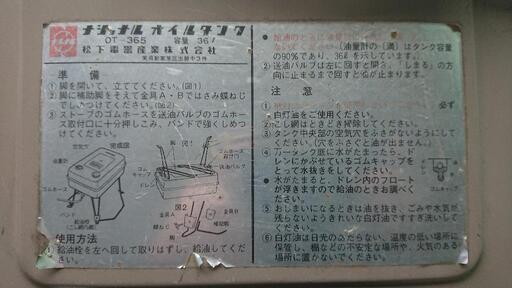 ナショナル オイルタンク
OT-365 容量 36ℓ
松下電器産業株式会社
準備
① 脚を開いて、立ててください。(図1)
② 脚に補助脚をそえて金具A・Bではさみ蝶ねじ
でしめつけてください。(図2)
③ ストーブのゴムホースを送油バルブのゴムホー
ス取付口に十分押しこみ、バンドで強くしめつ
けてください。
空気穴
完成図
油量計
ゴムホース
バンド
給油栓
(こし網内蔵)
図1
ゴムキャップ
ドレン
送油バルブ
脚
図2
金具A
金具B
蝶ねじ
脚
使用方法
① 給油栓を左へ回して取りはずし、給油してくだ
さい。
給油のときに油量計
ないでください。(油量計の(満)はタンク容量
の90%であり、36ℓを示しています。)
② 送油バルブは左に回すと開き、「しまる」の方向
に止まるまで回すと油が止まります。
注意
必ず
白灯油をご使用ください。
② こし網は、ときどき掃除してください。
③ タンク中央部の空気穴をふさがないようにして
ください。(穴をふさぐと油が出ません。)
④
レンにかぶせているゴムキャップを
とって水抜きをしてください。
● 水がたまると、ドレン内のフロート
が浮きますので給油のときお調べく
ださい。
⑤ おしまいになるときは油を抜き、ごみや水気が
残らないようきれいな白灯油ですすぎ洗いして
ください。
⑥ 白灯油は日光のあたらない、温度の低い場所に
保管し、棚などの不安定な場所や、火気のある
場所に置かないでください。